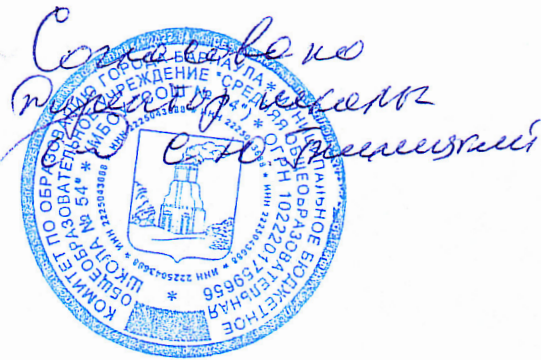 Согласовано
директор школы
С.Н.
КОМИТЕТ ПО ОБРАЗОВАНИЮ ГОРОДА БАРНАУЛА * МУНИЦИПАЛЬНОЕ БЮДЖЕТНОЕ
ОБЩЕОБРАЗОВАТЕЛЬНОЕ УЧРЕЖДЕНИЕ "СРЕДНЯЯ ОБЩЕОБРАЗОВАТЕЛЬНАЯ
ШКОЛА № 54" * (МБОУ "СОШ № 54") * ОГРН 1022201759656 *
ИНН 2225043688 * ИНН 2225043688 * ИНН 2225043688 * ИНН 2225043688